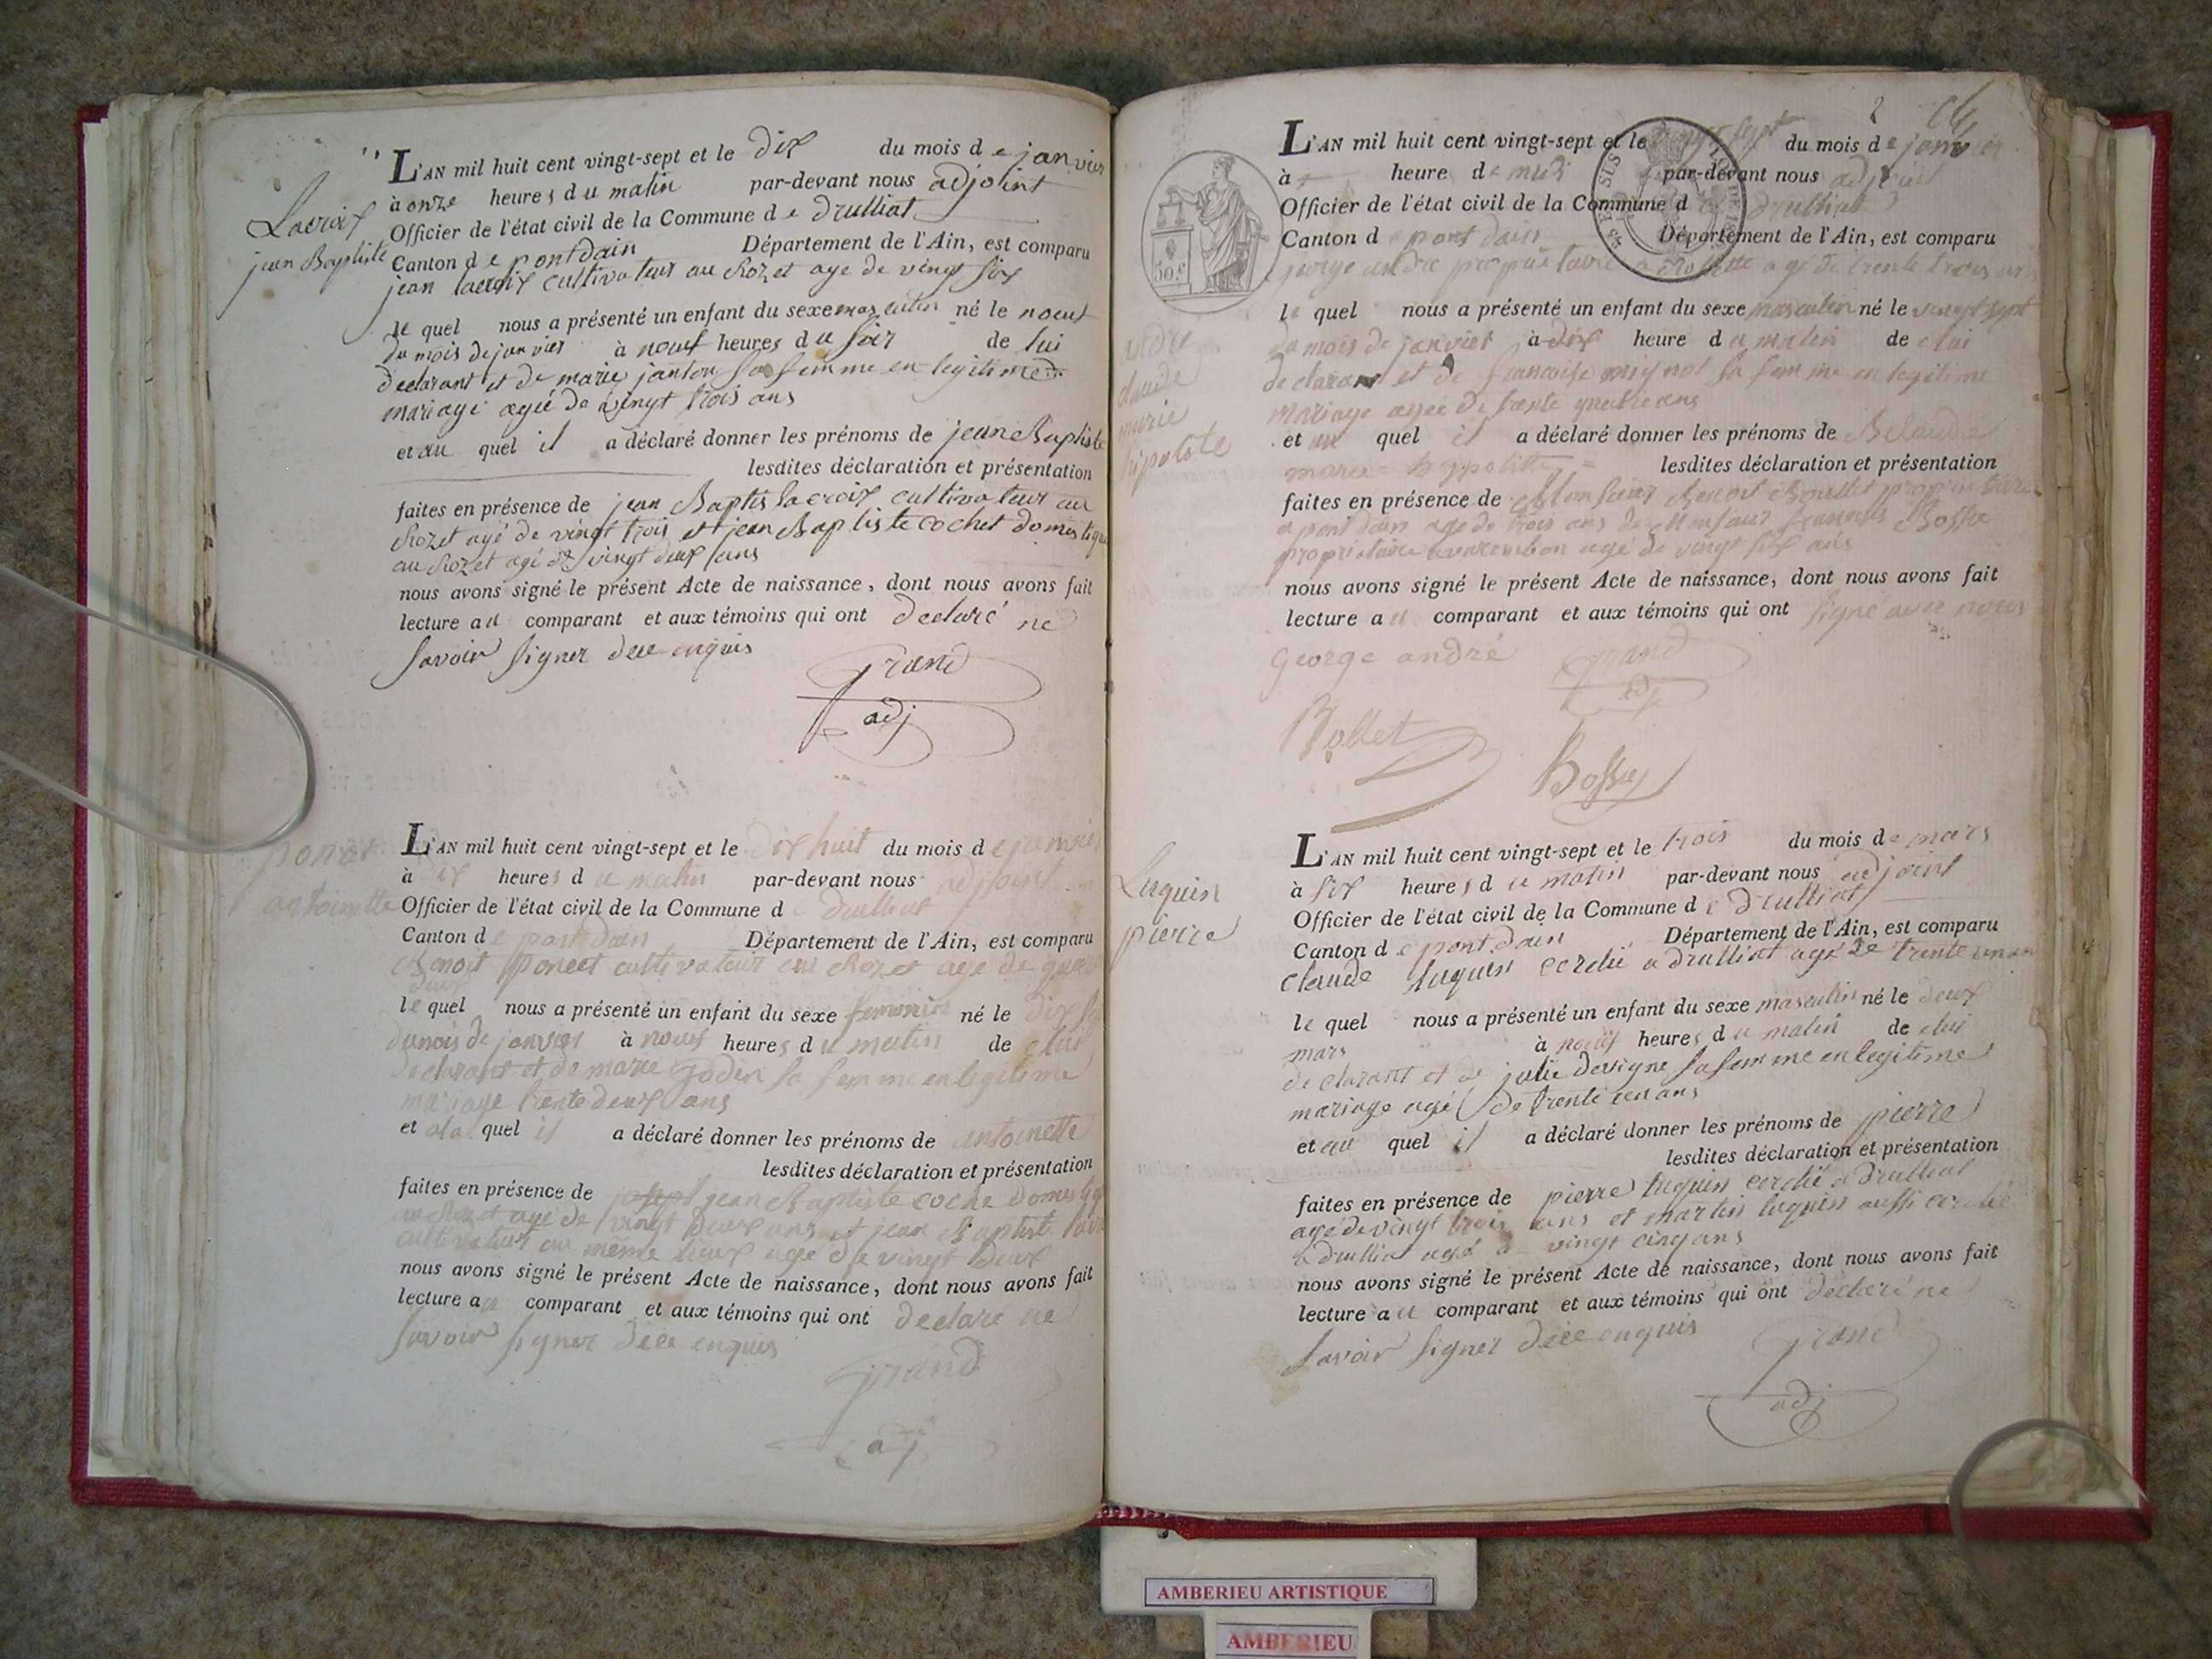 Lacroix
jean Baptiste
L'AN mil huit cent vingt-sept et le dix du mois de janvier
à onze heures du matin par-devant nous adjoint
Officier de l'état civil de la Commune de Druilliat
Canton de pontdain Département de l'Ain, est comparu
jean lacroix cultivateur au Rozet age de vingt six
le quel nous a présenté un enfant du sexe masculin né le neuf
du mois de janvier à neuf heures du soir de lui
declarant et de marie janton sa femme en legitime
mariage agée de vingt trois ans
et au quel il a déclaré donner les prénoms de jean Baptiste
lesdites déclaration et présentation
faites en présence de jean Baptis lacroix cultivateur au
Rozet agé de vingt trois et jean Baptiste cochet domestique
au Rozet agé de vingt deux ans
nous avons signé le présent Acte de naissance, dont nous avons fait
lecture au comparant et aux témoins qui ont declaré ne
savoir signer de ce enquis
Grand
adj
ponet
antoinette
L'AN mil huit cent vingt-sept et le dix huit du mois de janvier
à heures du matin par-devant nous adjoint
Officier de l'état civil de la Commune de Druilliat
Canton de pont dain Département de l'Ain, est comparu
Benoit poncet cultivateur au Rozet age de
deux
le quel nous a présenté un enfant du sexe feminin né le dix
du mois de janvier à neuf heures du matin de lui
declarant et de marie Goden sa femme en legitime
mariage trente deux ans
et a la quel il a déclaré donner les prénoms de antoinette
lesdites déclaration et présentation
faites en présence de jean Baptiste coche domestique
au Rozet age de vingt deux ans et jean Baptiste
cultivateur au même lieux age de vingt deux
nous avons signé le présent Acte de naissance, dont nous avons fait
lecture au comparant et aux témoins qui ont declare ne
savoir signer de ce enquis
Grand
adj
2
andre
claude
marie
hipolote
50.c
L'AN mil huit cent vingt-sept et le vingt sept du mois de janvier
à heure de midi par-devant nous adjoint
Officier de l'état civil de la Commune de Druilliat
Canton de pont dain Département de l'Ain, est comparu
george andre propriétaire a agé de trente trois ans
le quel nous a présenté un enfant du sexe masculin né le vingt sept
du mois de janvier à dix heure du matin de lui
declarant et de francoise mignot sa femme en legitime
mariage agée de trente quatre ans
et au quel il a déclaré donner les prénoms de
marie = hyppolitte = lesdites déclaration et présentation
faites en présence de Monsieur Benoit Bollet propriétaire
a pont dain age de trois ans de Monsieur francois Bossu
propriétaire a varembon agé de vingt six ans
nous avons signé le présent Acte de naissance, dont nous avons fait
lecture au comparant et aux témoins qui ont signé avec nous
George andré Grand
adj
Bollet
Bossu
Luquin
pierre
L'AN mil huit cent vingt-sept et le trois du mois de mars
à six heures du matin par-devant nous adjoint
Officier de l'état civil de la Commune de Druilliat
Canton de pont dain Département de l'Ain, est comparu
claude luquin cordié a druilliat agé de trente un an
le quel nous a présenté un enfant du sexe masculin né le deux
mars à neuf heures du matin de lui
declarant et de julie devigne sa femme en legitime
mariage agé de trente un ans
et au quel il a déclaré donner les prénoms de pierre
lesdites déclaration et présentation
faites en présence de pierre luquin cordié a Druilliat
agé de vingt trois ans et martin luquin aussi cordié
a druilliat agé de vingt cinq ans
nous avons signé le présent Acte de naissance, dont nous avons fait
lecture au comparant et aux témoins qui ont déclaré ne
savoir signer de ce enquis
Grand
adj
AMBERIEU ARTISTIQUE
AMBERIEU